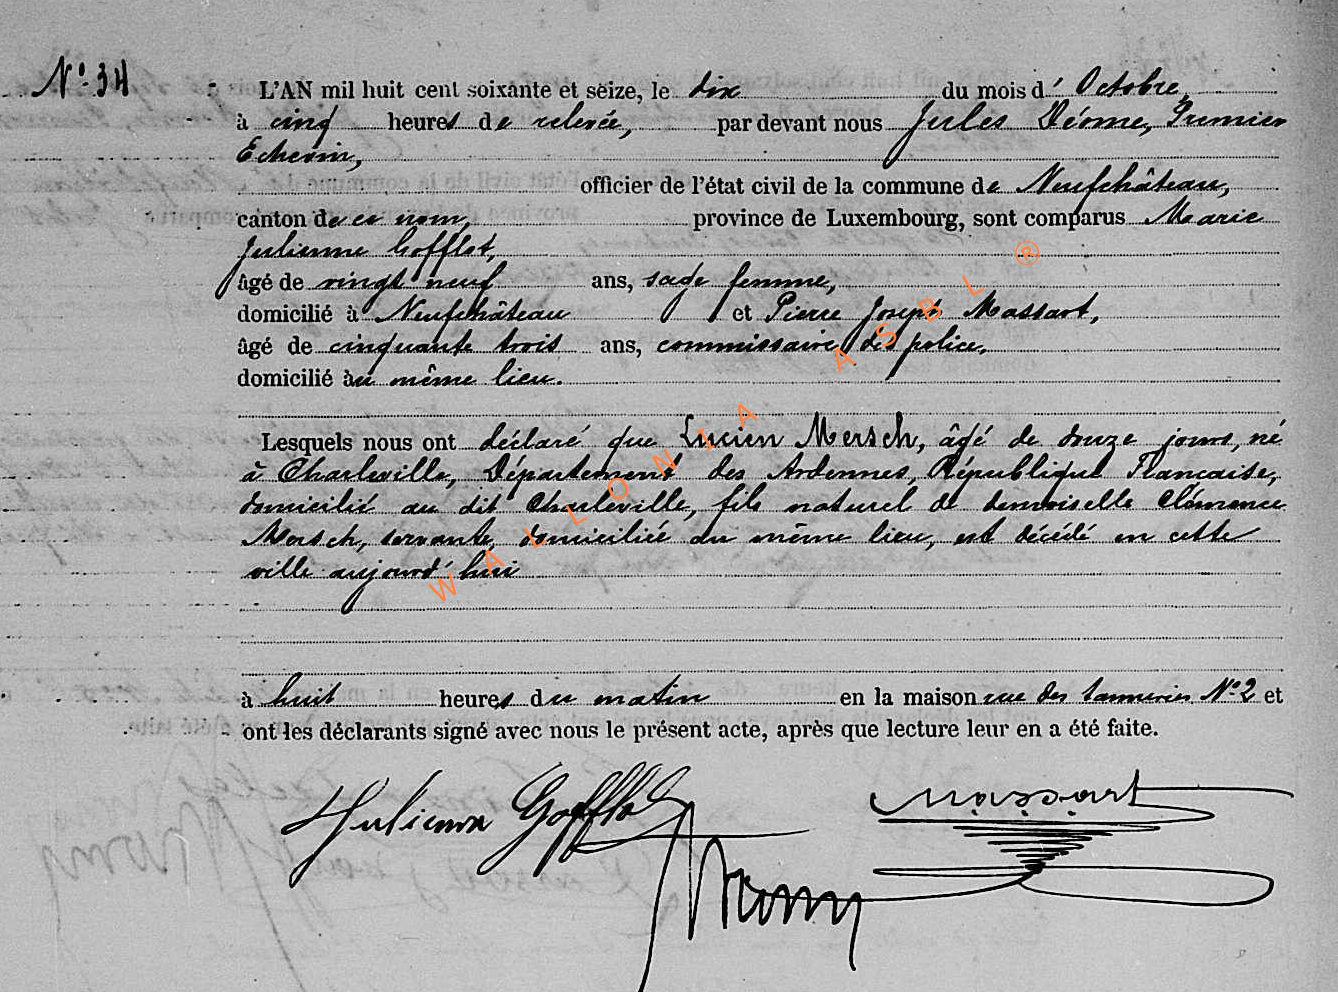 N° 34
L'AN mil huit cent soixante et seize, le dix du mois d'Octobre,
à cinq heures de relevée, par devant nous Jules Dérome, Premier
Echevin,
officier de l'état civil de la commune de Neufchâteau,
canton de ce nom, province de Luxembourg, sont comparus Marie
Julienne Gofflot,
âgé de vingt neuf ans, sage femme,
domicilié à Neufchâteau et Pierre Joseph Massart,
âgé de cinquante trois ans, commissaire de police,
domicilié au même lieu.
Lesquels nous ont déclaré que Lucien Mersch, âgé de douze jours, né
à Charleville, Département des Ardennes, République Française,
domicilié au dit Charleville, fils naturel de demoiselle Clémence
Mersch, servante, domiciliée au même lieu, est décédé en cette
ville aujourd'hui
à huit heures du matin en la maison rue des tanneries N° 2 et
ont les déclarants signé avec nous le présent acte, après que lecture leur en a été faite.
Julienne Gofflot
Massart
WALLONIA ASBL ®